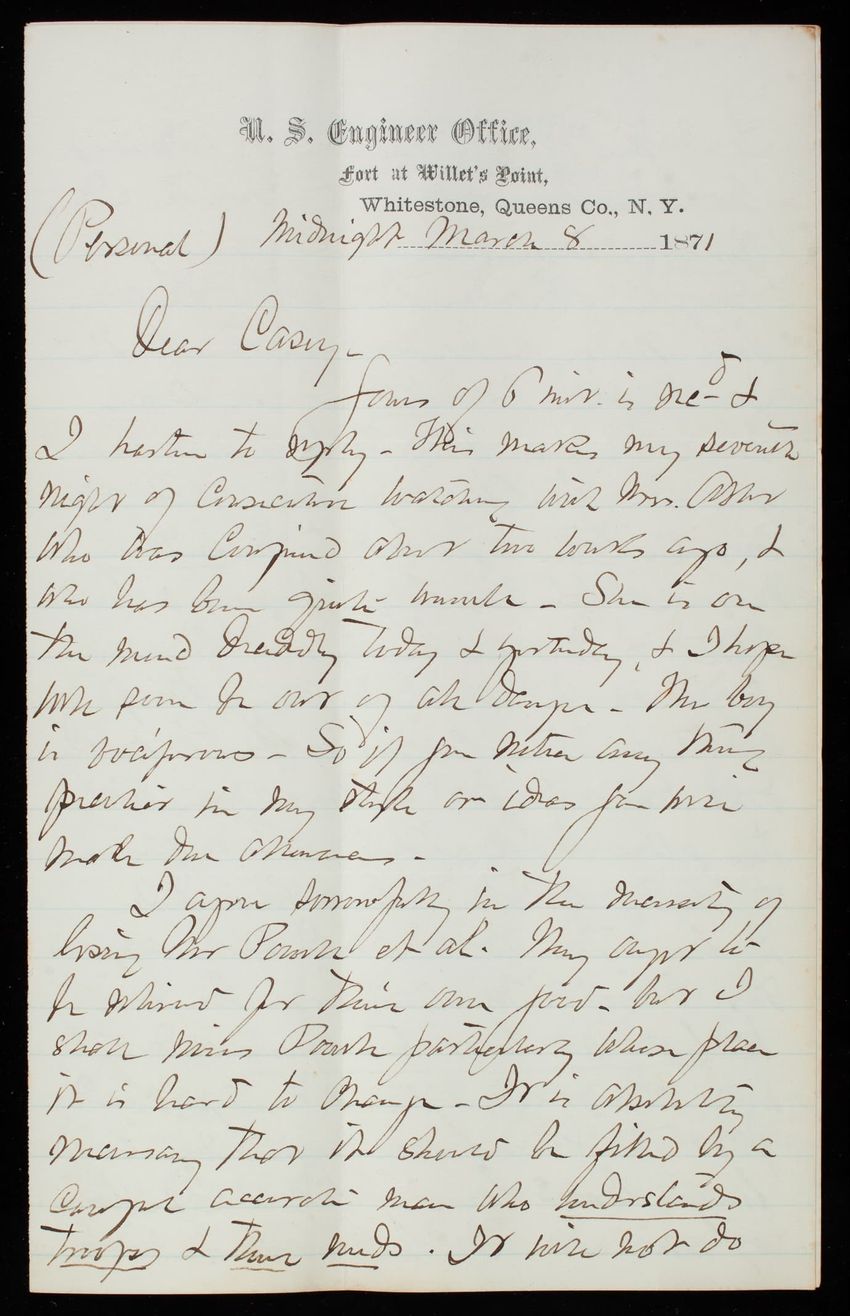 U. S. Engineer Office,
Fort at Willet's Point,
Whitestone, Queens Co., N. Y.
(Personal) Midnight March 8 1871
Dear Casey -
Yours of 6 inst. is rec-d &
I hasten to reply - This makes my seventh
night of consecutive watching with Mrs. Abbot
who was confined about two weeks ago, &
who has been quite unwell - She is on
the mend steadily today & yesterday, & I hope
will soon be out of all danger - The boy
is vociferous - So if you notice any thing
peculiar in my style or ideas you will
make due allowances -
I agree sorrowfully in the necessity of
losing Mr et al. They ought to
be relieved for their own good - but I
shall miss particularly whose place
it is hard to change - It is absolutely
necessary that it should be filled by a
careful accurate man who understands
troops & their needs. It will not do